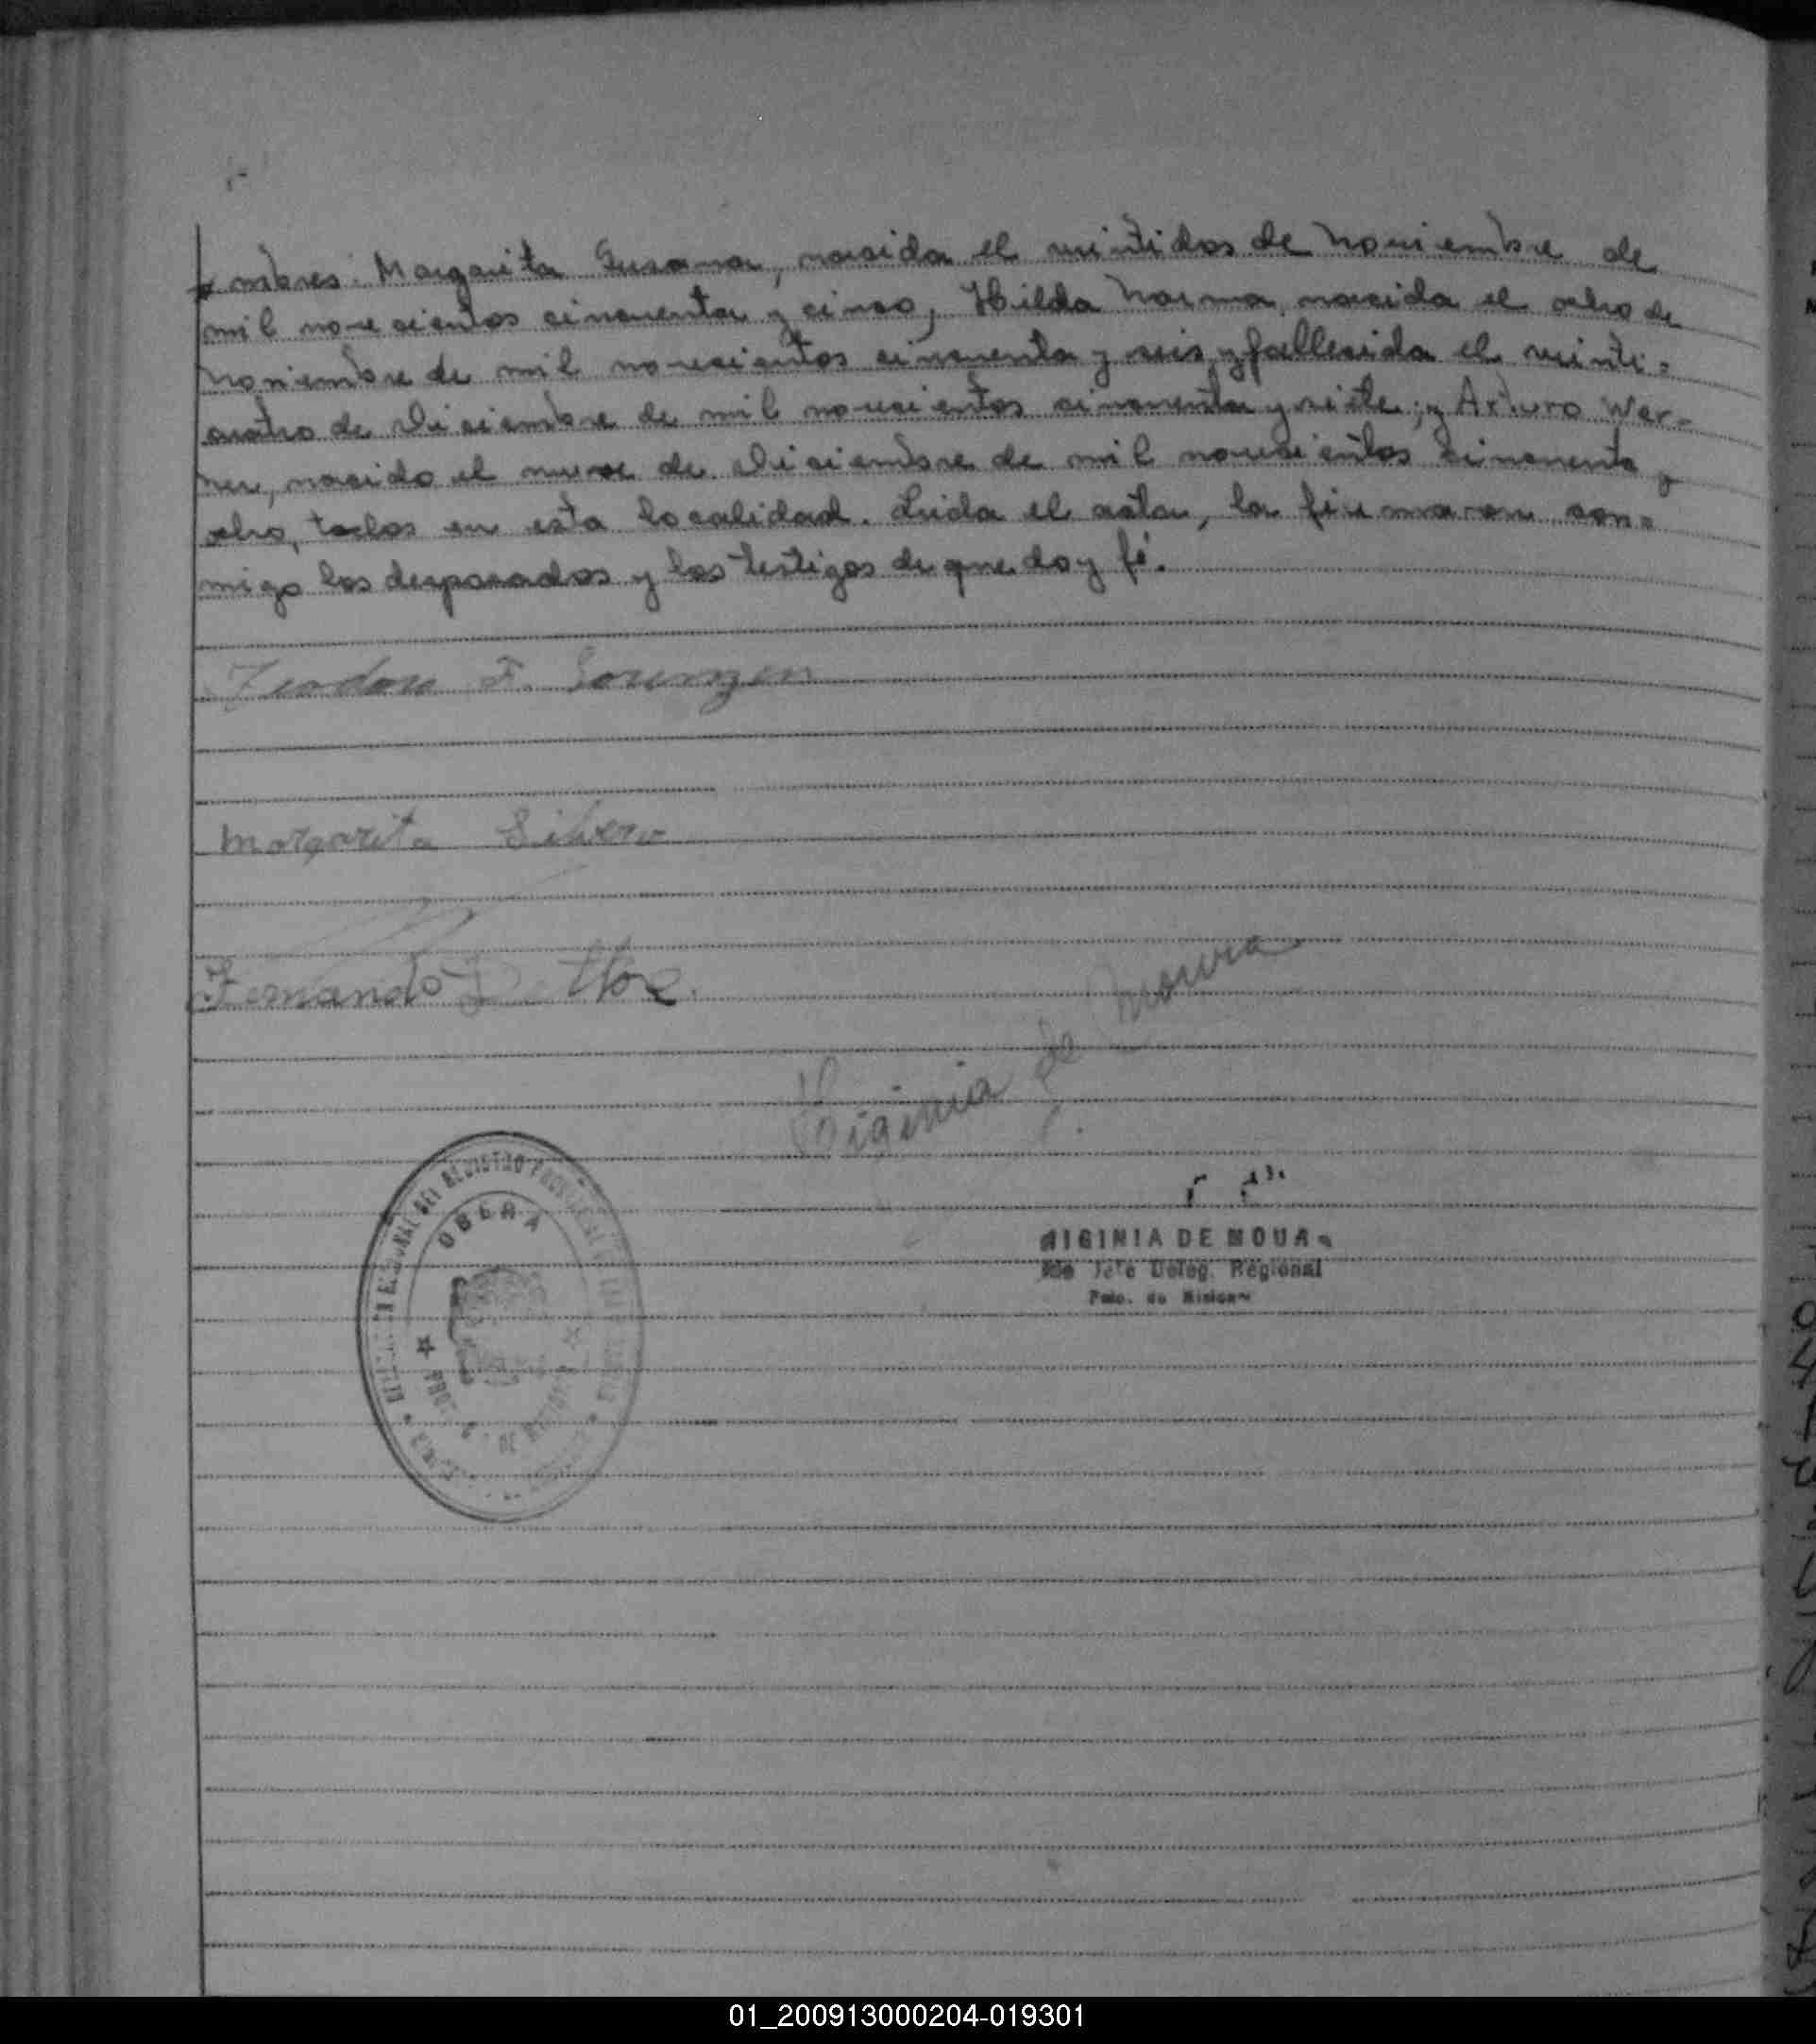 mbres: Margarita Susana, nacida el veintidos de Noviembre de
mil novecientos cincuenta y cinco, Hilda Norma, nacida el ocho de
Noviembre de mil novecientos cincuenta y seis y fallecida el veinti=
cuatro de Diciembre de mil novecientos cincuenta y siete; y Arturo Wer=
ner, nacido el nueve de Diciembre de mil novecientos cincuenta y
ocho, todos en esta localidad. Leida el acta, la firmaron con=
migo los desposados y los testigos de que doy fé.
Teodoro F.
Margarita Silvero
Fernando
Higinia de Moura
OBERA
HIGINIA DE MOURA
Jefe Deleg. Regional
Pcia. de Misiones
01_200913000204-019301